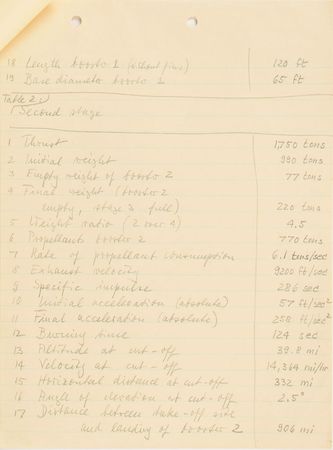 18 Length booster 1 (without fins) 120 ft
19 Base diameter booster 1 65 ft
Table 2.
Second stage
1 Thrust 1,750 tons
2 Initial weight 990 tons
3 Empty weight of booster 2 77 tons
4 Final weight (booster 2
empty, stage 3 full) 220 tons
5 Weight ratio (2 over 4) 4.5
6 Propellants booster 2 770 tons
7 Rate of propellant consumption 6.1 tons/sec
8 Exhaust velocity 9200 ft/sec
9 Specific impulse 286 sec
10 Initial acceleration (absolute) 57 ft/sec²
11 Final acceleration (absolute) 258 ft/sec²
12 Burning time 124 sec
13 Altitude at cut-off 39.8 mi
14 Velocity at cut-off 14,364 mi/hr
15 Horizontal distance at cut-off 332 mi
16 Angle of elevation at cut-off 2.5°
17 Distance between take-off site
and landing of booster 2 906 mi